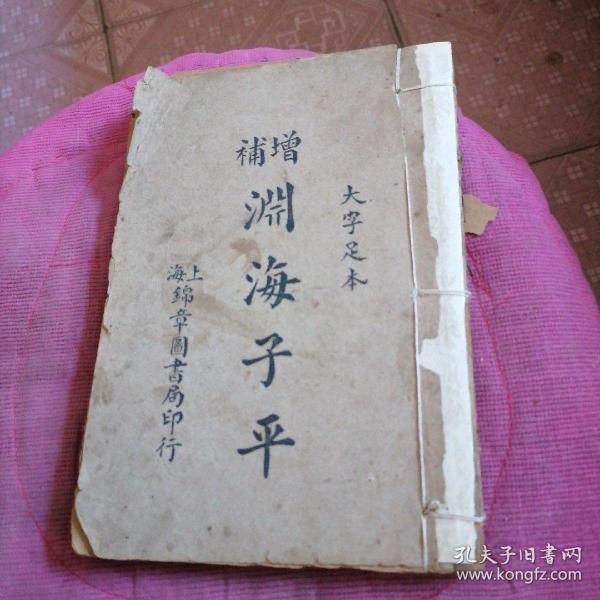 大字足本
增補
淵海子平
上海
錦章圖書局印行
孔夫子旧书网
www.kongfz.com